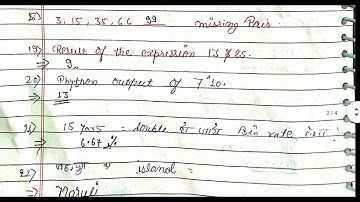 18) 3, 15, 35, 66 99 missing Pair
19) Result of the expression is & 25.
⇒ 9,,
20) Phython output of 7^10.
⇒ 13
21) 15 years = double हो जायेगा rate
⇒ 6.67 %
22) island =
⇒
2/4